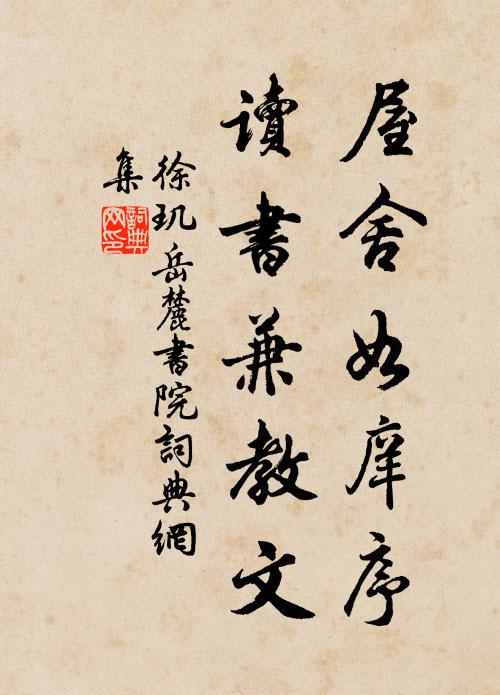 屋舍如庠序
讀書兼教文
徐玑岳麓書院詞典網
集
詞典網印